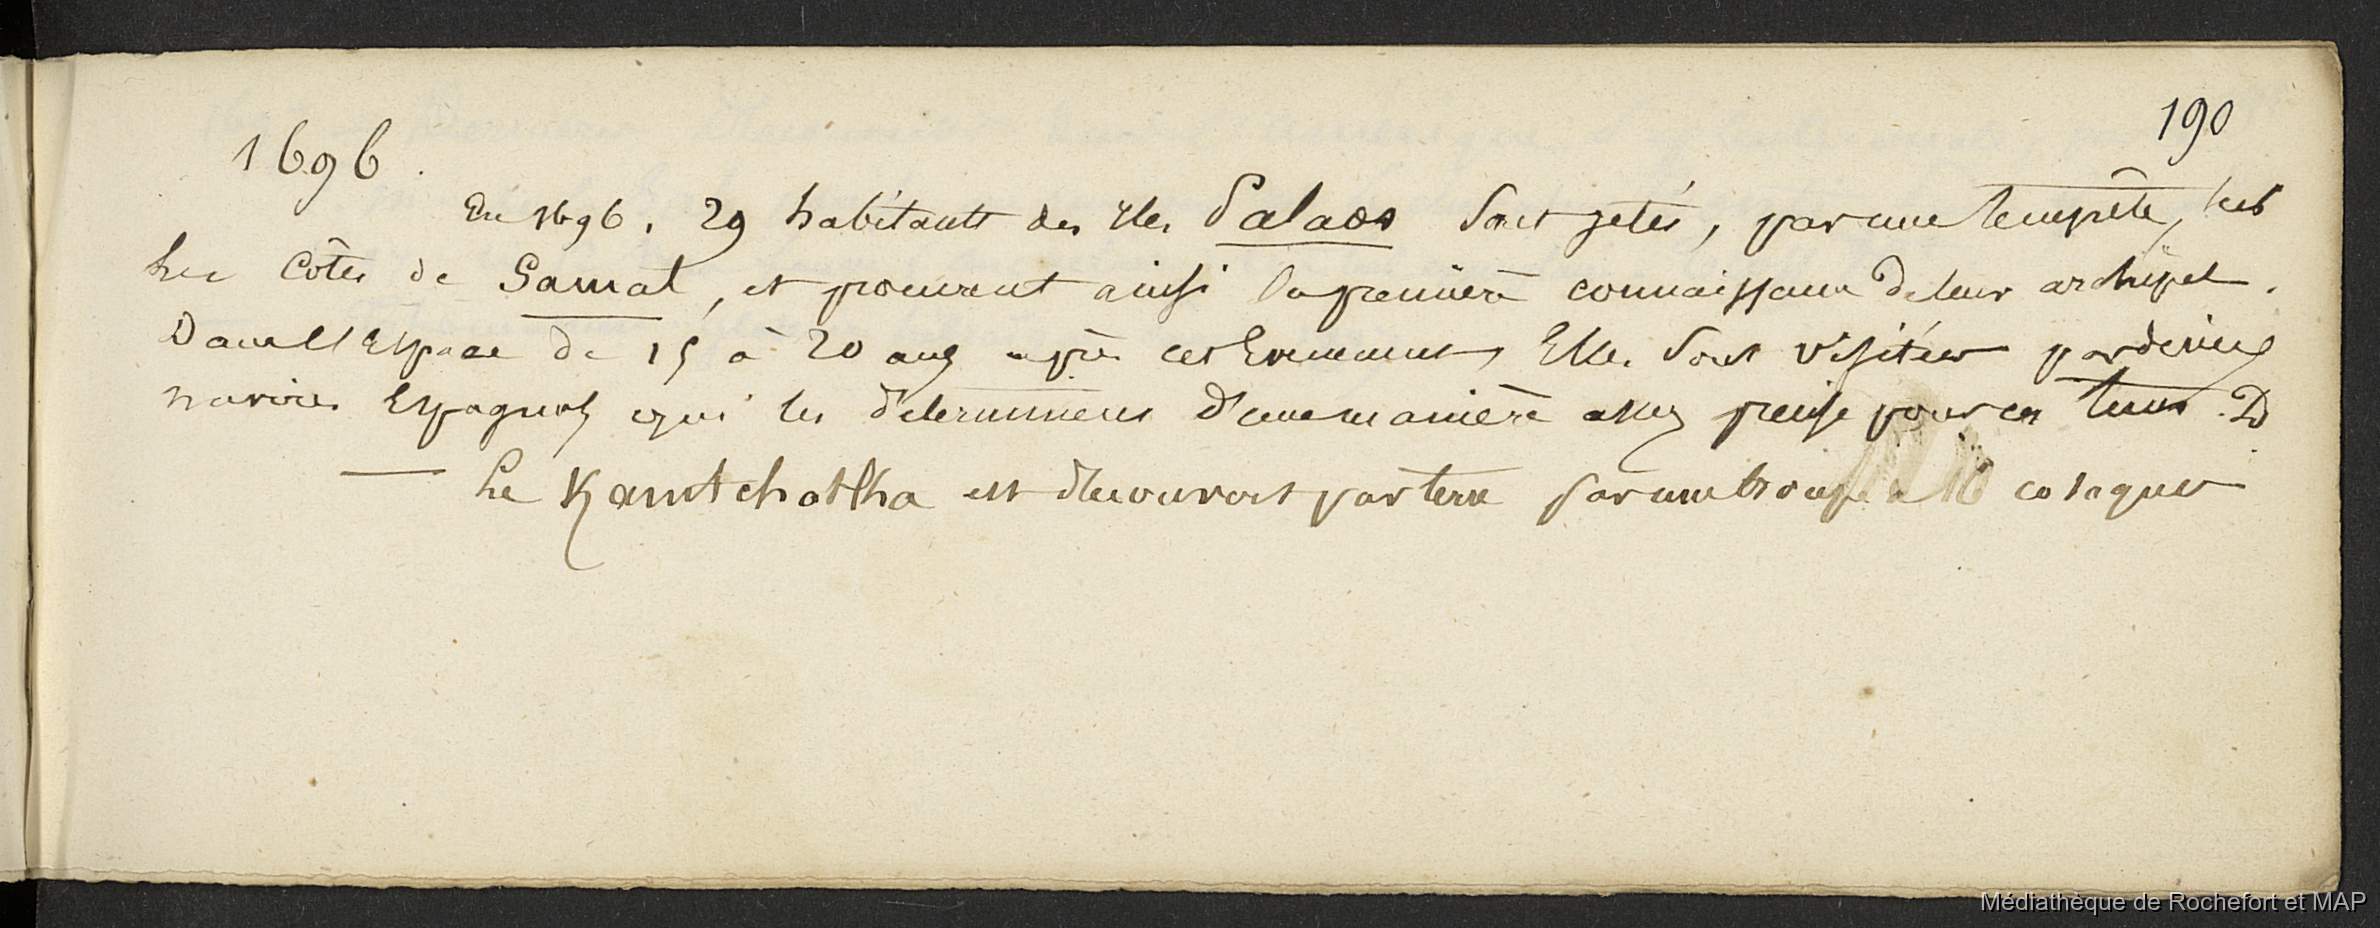 190
1696.
En 1696. 29 habitants des Iles Palaos sont jetés, par une tempête, sur
les Côtes de Samal, et procurent ainsi la première connaissance de leur archipel.
Dans l'Espace de 15 à 20 ans après cet Evenement, Elles sont visitées par divers
navires Espagnols qui les déterminent d'une manière assez précise pour ces tems. D
— Le Kamtchatka est découvert par terre par une troupe de 16 cosaques
Médiathèque de Rochefort et MAP